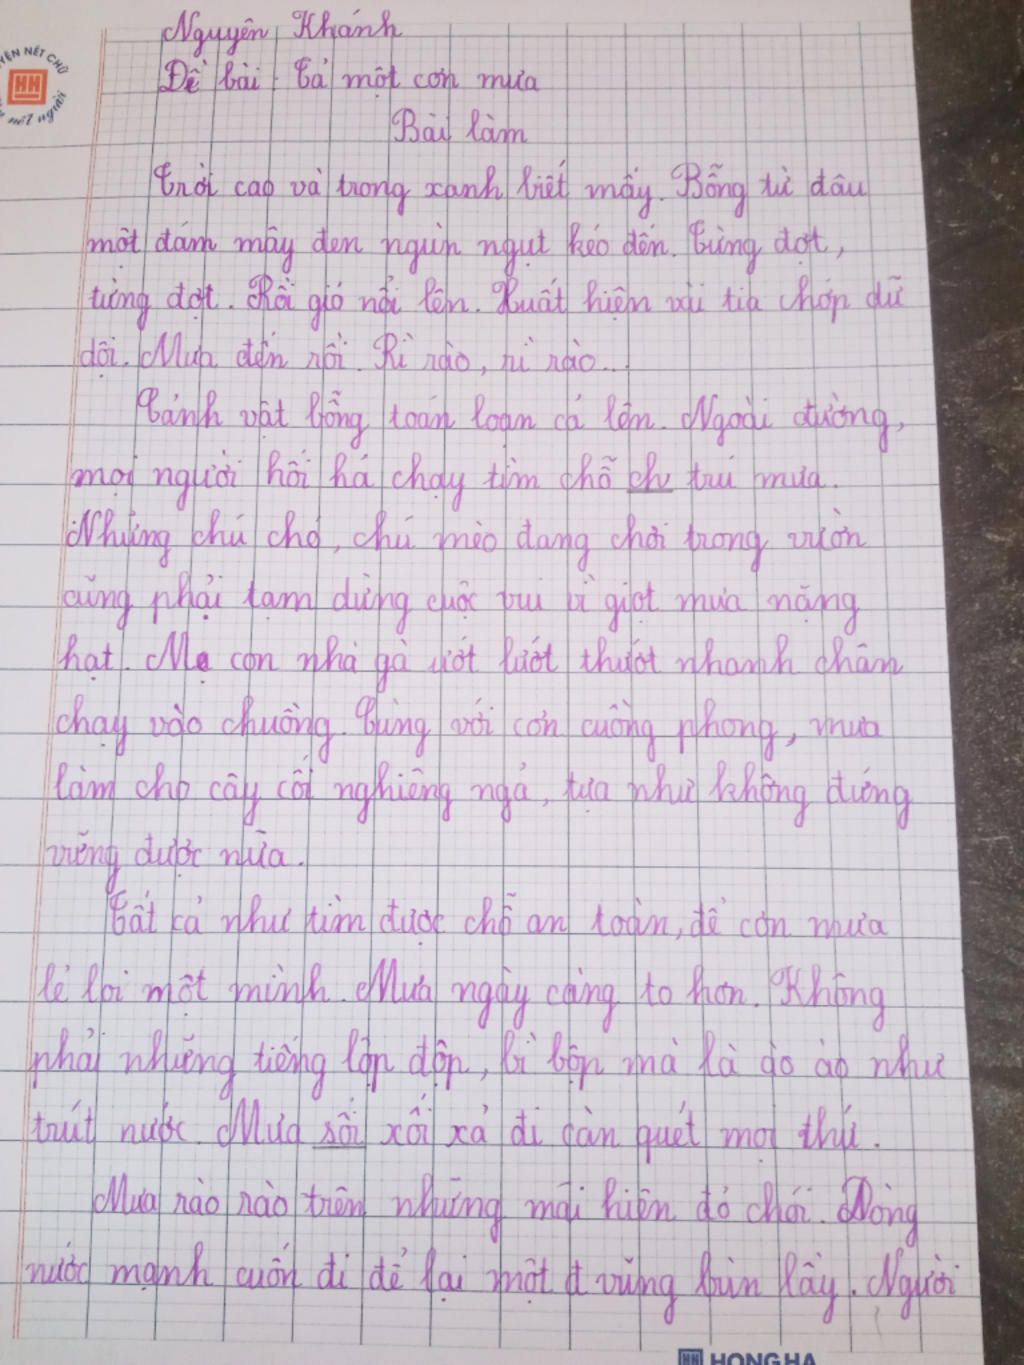 Nguyên Khánh
YỆN NÉT CHỮ
Đề bài: Tả một cơn mưa
nết người
Bài làm
Trời cao và trong xanh biết mấy. Bỗng từ đâu
một đám mây đen ngùn ngụt kéo đến. Từng đợt,
từng đợt. Rồi gió nổi lên. Xuất hiện vài tia chớp dữ
dội. Mưa đến rồi. Rì rào, rì rào...
Cảnh vật bỗng toán loạn cả lên. Ngoài đường,
mọi người hối hả chạy tìm chỗ ch trú mưa.
Những chú chó, chú mèo đang chơi trong vườn
cũng phải tạm dừng cuộc vui vì giọt mưa nặng
hạt. Mẹ con nhà gà ướt lướt thướt nhanh chân
chạy vào chuồng. Cùng với cơn cuồng phong, mưa
làm cho cây cối nghiêng ngả, tựa như không đứng
vững được nữa.
Tất cả như tìm được chỗ an toàn, để cơn mưa
lẻ loi một mình. Mưa ngày càng to hơn. Không
phải những tiếng lộp độp, bì bộp mà là ào ào như
trút nước. Mưa sối xối xả đi càn quét mọi thứ.
Mưa rào rào trên những mái hiên đỏ chói. Dòng
nước mạnh cuốn đi để lại một đ vũng bùn lầy. Người
HH HONG HA